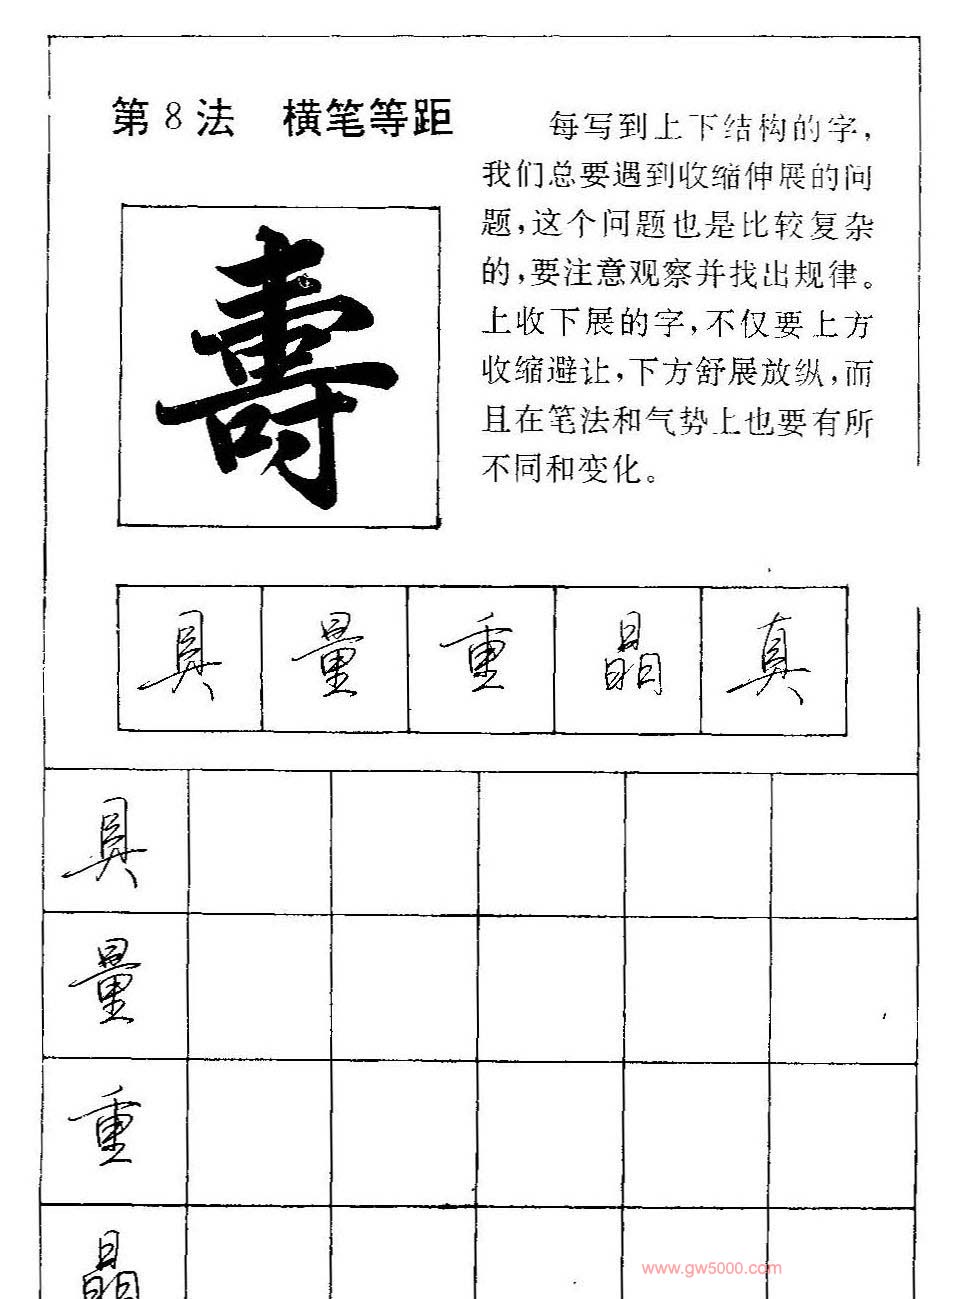 第8法 横笔等距
每写到上下结构的字，
我们总要遇到收缩伸展的问
题，这个问题也是比较复杂
的，要注意观察并找出规律。
上收下展的字，不仅要上方
收缩避让，下方舒展放纵，而
且在笔法和气势上也要有所
不同和变化。
壽
具 量 重 晶 真
具
量
重
晶
www.gw5000.com